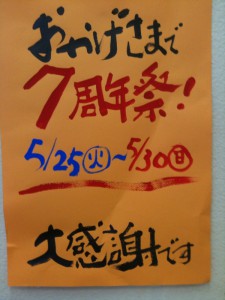 おかげさまで
7周年祭!
5/25㊋〜5/30㊐
大感謝です